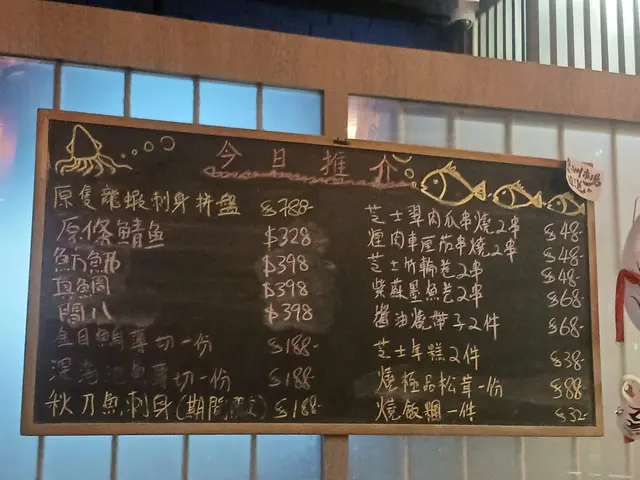 今日推介
原隻龍蝦刺身拼盤 $788-
原條鯖魚 $328
魴鮄 $398
真鯛 $398
間八 $398
金目鯛薄切一份 $188-
深海池魚薄切一份 $188-
秋刀魚刺身(期間限定) $188-
芝士翠肉瓜串燒2串 $48-
煙肉車厘茄串燒2串 $48-
芝士竹輪卷2串 $48-
紫蘇墨魚卷2串 $68-
醬油燒帶子2件 $68-
芝士年糕2件 $38-
燒極品松茸一份 $88-
燒飯糰一件 $32-